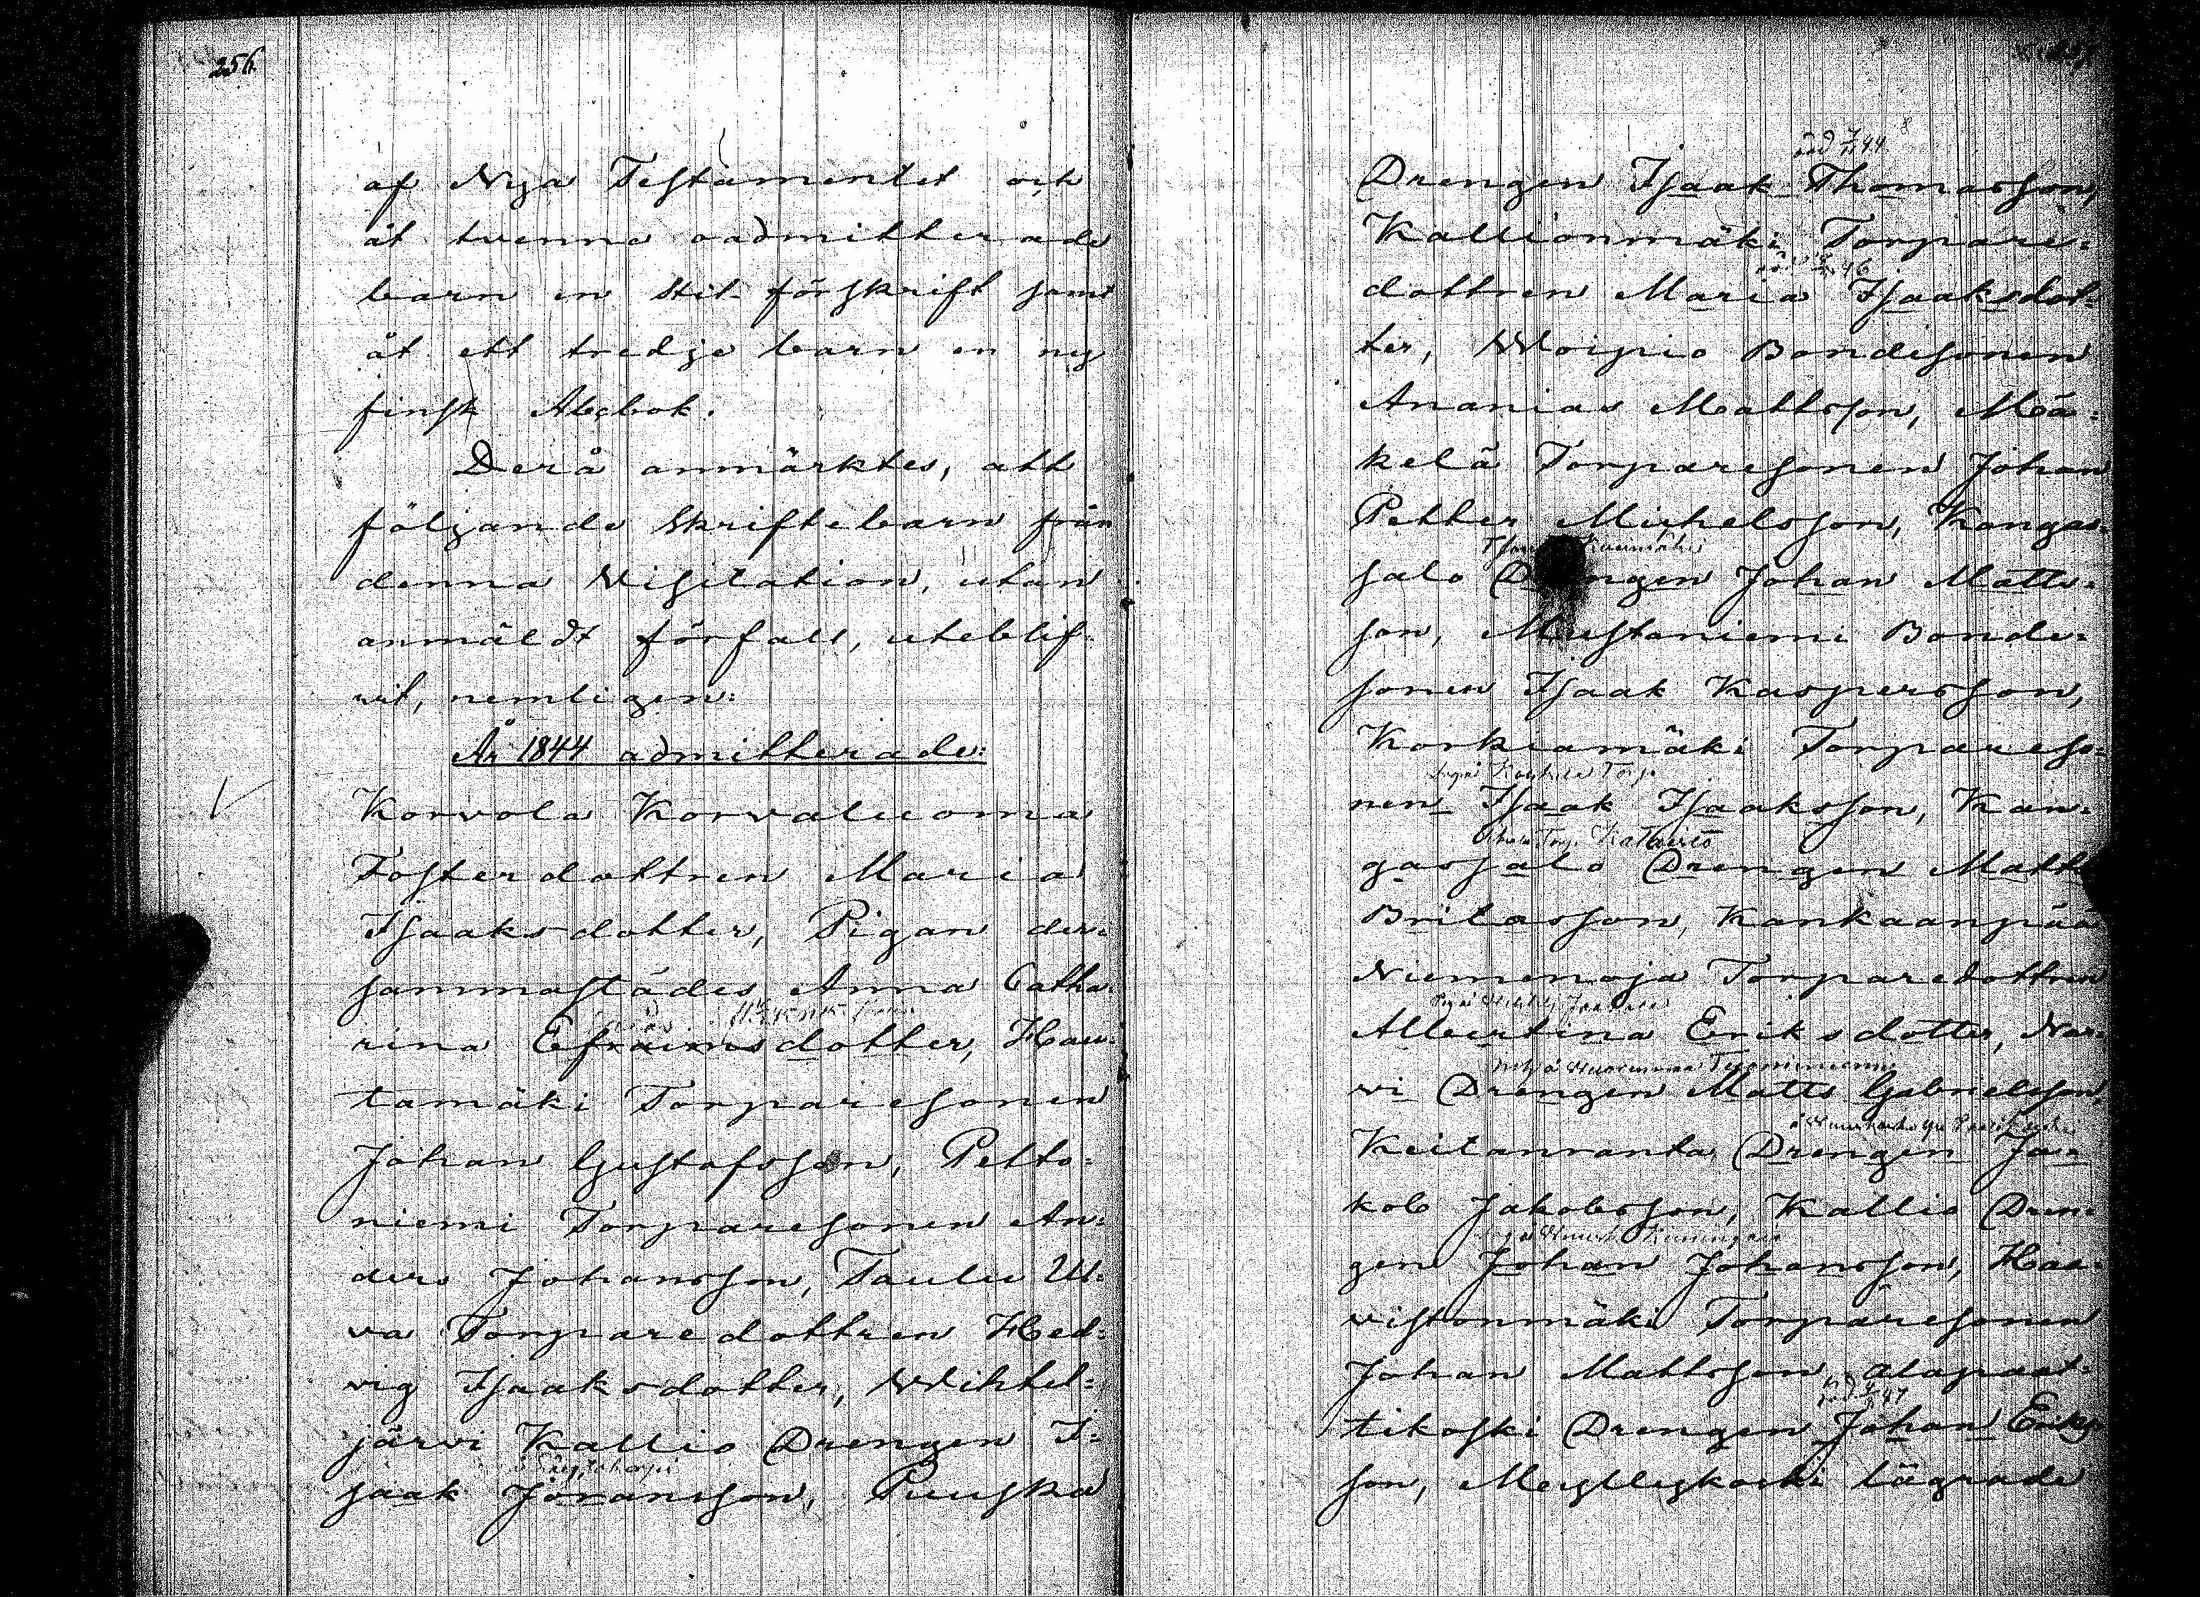 256.
af Nya Testamentet och
åt tvenne oadmitterade
barn en stil-förskrift samt
åt ett tredje barn en ny
finsk Abcbok.
Derå anmärktes, att
följande Skriftebarn från
denna Visitation, utan
anmäldt förfall, uteblif-
vit, nemligen:
År 1844 admitterade:
Korvola Korvaluoma
Fosterdottren Maria
Isaaksdotter, Pigan der-
sammastädes Anna Catha-
rina Efraimsdotter, Hau-
tamäki Torparesonen
Johan Gustafsson, Pelto-
niemi Torparesonen An-
ders Johansson, Taulu Ul-
va Torparedottren Hed-
vig Isaaksdotter, Wihtel-
järvi Kallio Drengen I-
saak Joransson, Puuska
död 44
Drengen Isaak Thomasson,
Kallionmäki Torpare-
död 46
dottren Maria Isaaksdot-
ter, Woipio Bondesonen
Ananias Mattsson, Mä-
kelä Torparesonen Johan
Petter Michelsson, Kangas-
salo Drengen Johan Matts-
son, Mustaniemi Bonde-
sonen Isaak Kaspersson,
Korkiamäki Torpareso-
Torp
nen Isaak Isaaksson, Kan-
Torp.
gassalo Drengen Matts
Britasson, Kankaanpää
Niemenoja Torparedottren
Albertina Eriksdotter, Nar-
vi Drengen Matts Gabrielsson,
Keitanranta Drengen Ja-
kob Jakobsson, Kallio Dren-
gen Johan Johansson, Haa-
vistonmäki Torparesonen
Johan Mattsson, Alapaat-
död 47
tikoski Drengen Johan Eriks-
son, Myllykoski lägrade